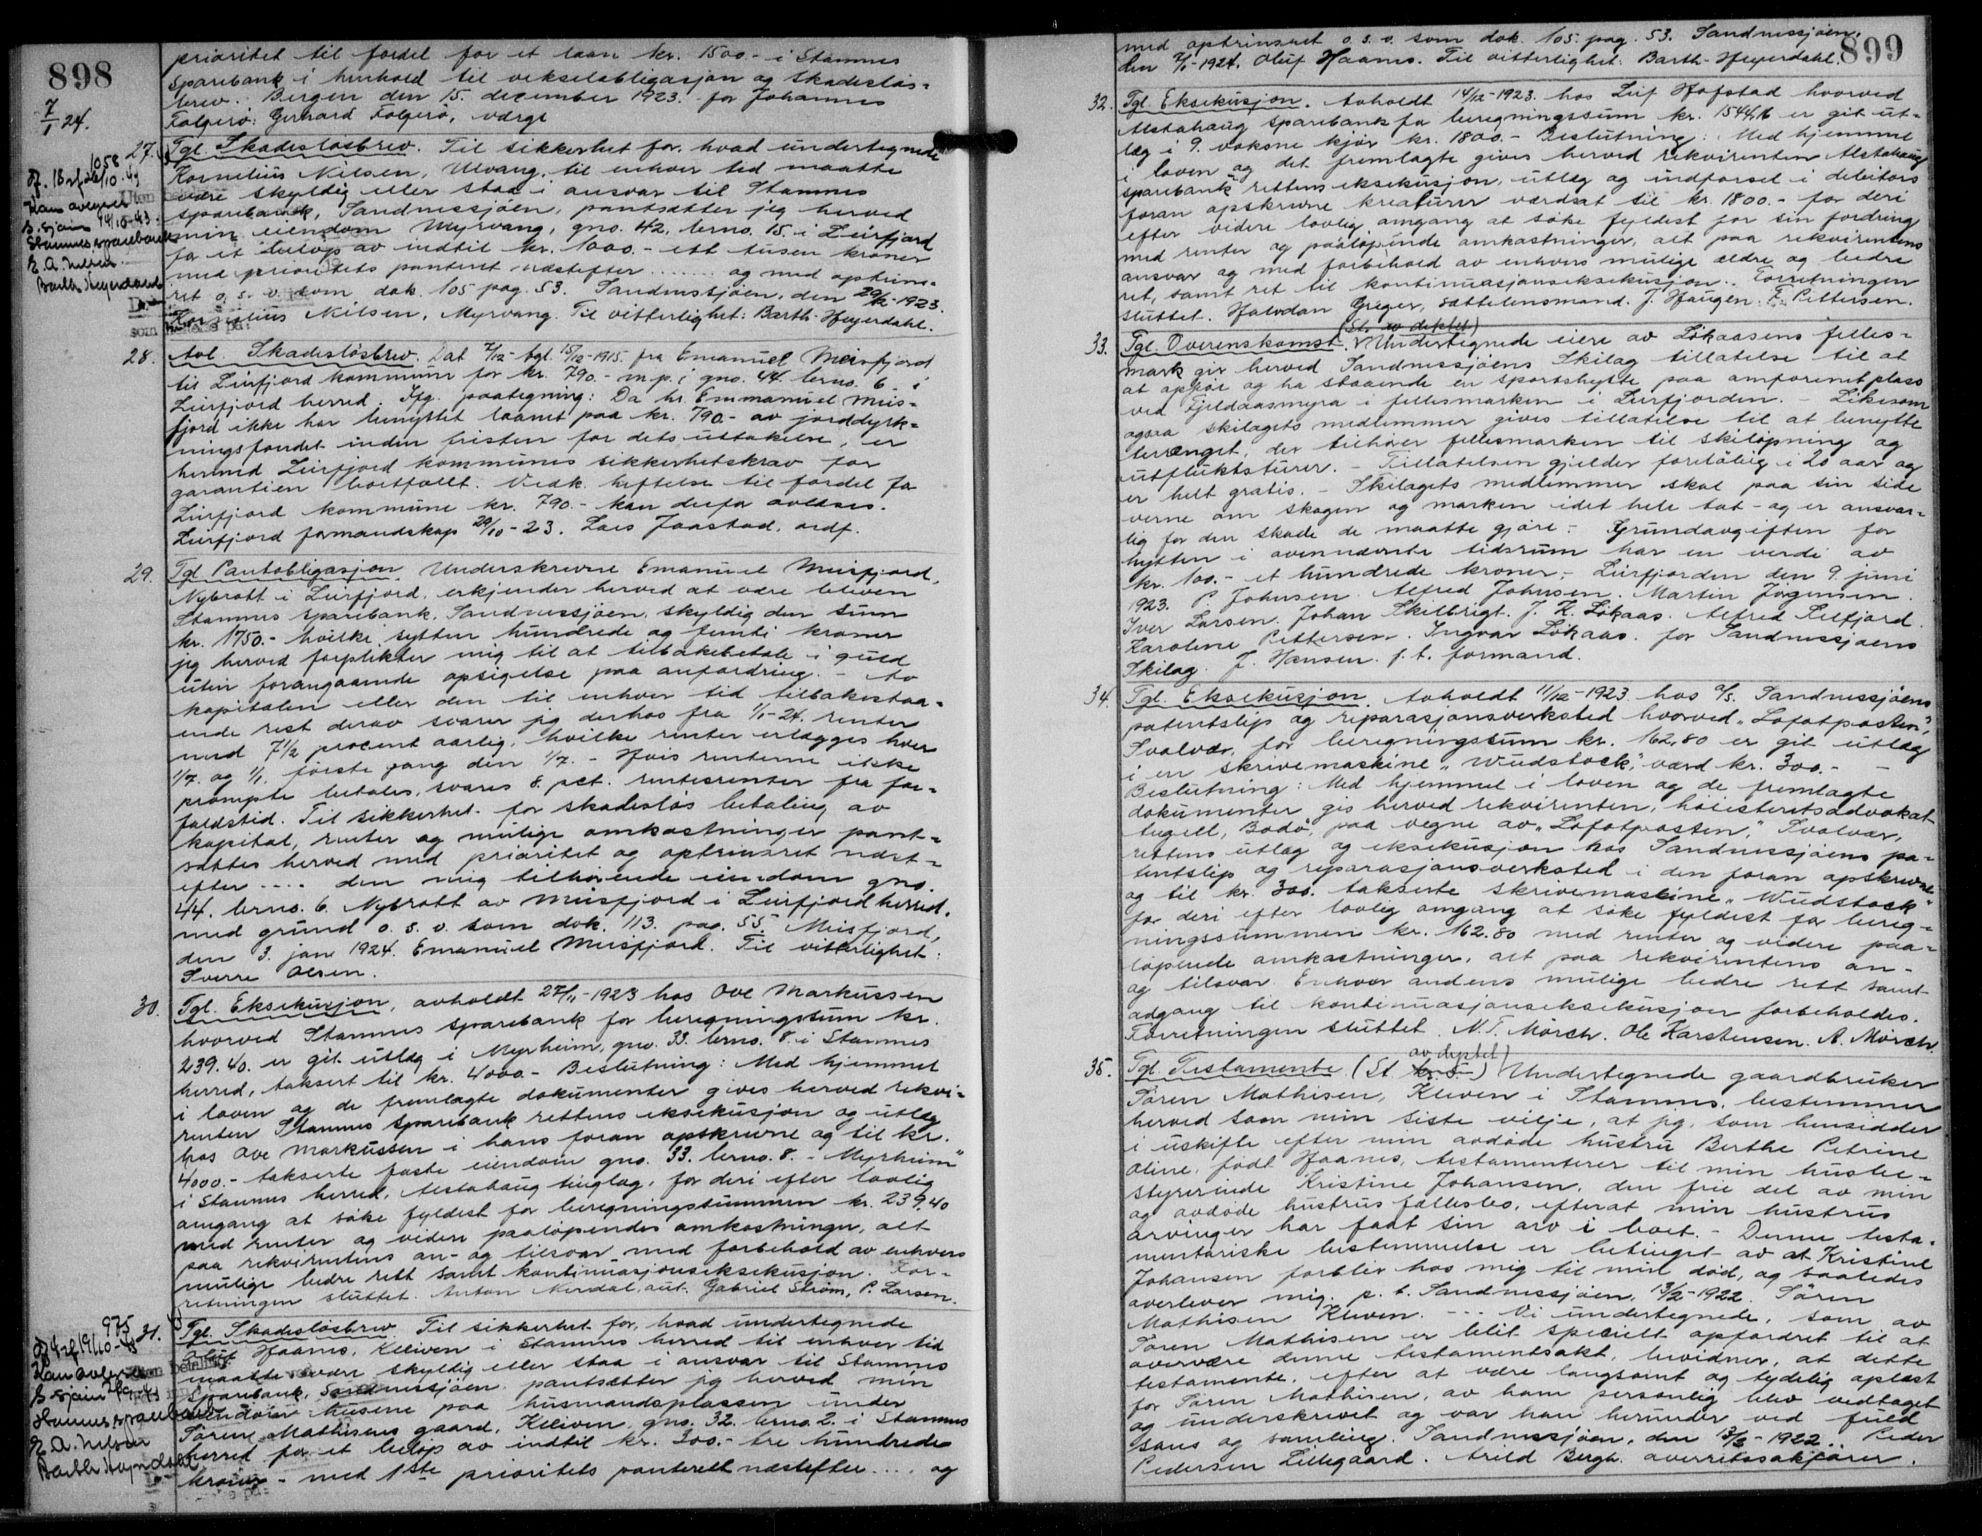 898
7/1 24.
prioritet til fordel for et laan kr. 1500.- i Stamnes
Sparebank i henhold til vekselobligasjon og skadesløs-
brev. Bergen den 15. december 1923. for Johannes
Falgerø: Gerhard Falgerø, verge
27. Tgl. Skadesløsbrev. Til sikkerhet for, hvad undertegnede
Kornelius Nilsen, Ulvang, til enhver tid maatte
være skyldig eller staa i ansvar til Stamnes
sparebank, Sandnessjøen, pantsætter jeg herved
min eiendom Myrvang, gno. 42, brno. 15 i Leirfjord
for et beløp av indtil kr. 1000.- ett tusen kroner
med prioritets panteret næstefter ...... og med optrins-
ret o. s. v. som dok. 105 pag. 53. Sandnessjøen, den 29/12-1923.
Kornelius Nilsen, Myrvang. Til vitterlighet: Barth-Heyerdahl.
28. Avl. Skadesløsbrev. Dat 7/12- tgl. 15/12-1915. fra Emanuel Meisfjord
til Leirfjord kommune for kr. 790.- m.p. i gno. 44. brno. 6. i
Leirfjord herred. Ifg. paategning: Da hr. Emmanuel Meis-
fjord ikke har benyttet laanet paa kr. 790.- av jorddyrk-
ningsfondet inden fristen for dets uttakelse, er
hermed Leirfjord kommunes sikkerhetskrav for
garantien bortfallt. Vedk. heftelse til fordel for
Leirfjord kommune kr. 790.- kan derfor avlæses.
Leirfjord formandskap 29/10-23. Lars Jaastad, ordf.
29. Tgl. Pantobligasjon. Underskrevne Emanuel Meisfjord,
Nybrott i Leirfjord, erkjender herved at være bleven
Stamnes sparebank, Sandnessjøen, skyldig den sum
kr. 1750.- hvilke sytten hundrede og femti kroner
jeg herved forplikter mig til at tilbakebetale i guld
uten forangaaende opsigelse paa anfordring. - Av
kapitalen eller den til enhver tid tilbakestaa-
ende rest derav svarer jeg derhos fra 1/1-24. renter
med 7 1/2 procent aarlig, hvilke renter erlægges hver
1/7. og 1/1. første gang den 1/7. - Hvis renterne ikke
prompte betales, svares 8. pct. rentesrenter fra for-
faldstid. Til sikkerhet for skadesløs betaling av
kapital, renter og mulige omkostninger pant-
sættes herved med prioritet og optrinsret næst-
efter .... den mig tilhørende eiendom gno.
44. brno. 6. Nybrott av Meisfjord i Leirfjord herred.
med grund o. s. v. som dok. 113. pag. 55. Meisfjord,
den 3. jan 1924. Emanuel Meisfjord. Til vitterlighet:
Sverre Olsen.
30. Tgl. Eksekusjon, avholdt 27/11-1923 hos Ove Markussen
hvorved Stamnes sparebank for beregningssum kr.
239.40. er git utlæg i Myrheim, gno. 33. brno. 8. i Stamnes
herred, taksert til kr. 4000.- Beslutning: Med hjemmel
i loven og de fremlagte dokumenter gives herved rekvi-
renten Stamnes sparebank rettens eksekusjon og utlæg
hos Ove Markussen i hans foran opskrevne og til kr.
4000.- takserte faste eiendom gno. 33. brno. 8. - "Myrheim"
i Stamnes herred, Alstahaug tinglag, for deri efter lovlig
omgang at søke fyldest for beregningssummen kr. 239.40
med renter og videre paaløpende omkostninger, alt
paa rekvirentens an- og tilsvar med forbehold av enhvers
mulige bedre rett samt kontinuasjonseksekusjon. For-
retningen sluttet. Anton Nerdal, aut. Gabriel Strøm, P. Larsen.
31. Tgl. Skadesløsbrev. Til sikkerhet for, hvad undertegnede
Oluf Haanes, Kleiven i Stamnes herred til enhver tid
maatte være skyldig eller staa i ansvar til Stamnes
Sparebank, Sandnessjøen, pantsætter jeg herved min
eiendom husene paa husmandsplassen under
Sørene Mathisens gaard, Kleiven, gno. 32. brno. 2. i Stamnes
herred for et beløp av indtil kr. 300.- tre hundrede
kroner - med 1ste prioritets panterett næstefter ... og
899
med optrinsret o. s. v. som dok. 105. pag. 53. Sandnessjøen.
den 2/1-1924. Oluf Haanes. Til vitterlighet: Barth-Heyerdahl.
32. Tgl. Eksekusjon. Avholdt 14/12-1923. hos Leif Hofstad hvorved
Alstahaug sparebank for beregningssum kr. 1544,16 er git ut-
læg i 9. voksne kjør kr. 1800.- Beslutning: Med hjemmel
i loven og det fremlagte gives herved rekvirenten Alstahaug
sparebank rettens eksekusjon, utlæg og indførsel i debitors
foran opskrevne kreaturer værdsat til kr. 1800.- for deri
efter videre lovlig omgang at søke fyldest for sin fordring
med renter og paaløpende omkostninger, alt paa rekvirentens
ansvar og med forbehold av enhvers mulige ældre og bedre
ret, samt ret til kontinuasjonseksekusjon. Forretningen
sluttet. Halvdan Greger, sættelensmand. J. Haugen. F. Pettersen.
33. Tgl. Overenskomst. (St. av dektet) Undertegnede eiere av Løkaasens felles-
mark gir herved Sandnessjøens Skilag tillatelse til at
at opføre og ha staaende en sportshytte paa omforenet plass
ved Fjeldaasmyra i fellesmarken i Leirfjorden. - Likesom
ogsaa skilagets medlemmer gives tillatelse til at benytte
terrænget, der tilhører fellesmarken til skiløpning og
utfluktsturer. - Tillatelsen gjelder foreløbig i 20 aar og
er helt gratis. - Skilagets medlemmer skal paa sin side
verne om skogen og marken idet hele tat - og er ansvar-
lig for den skade de maatte gjøre - Grundavgiften for
hytten i ovennævnte tidsrum har en verde av
kr. 100.- et hundrede kroner; - Leirfjorden den 9. juni
1923. P. Johnsen. Alfred Johnsen. Martin Jørgensen.
Iver Larsen. Johan Skelbrigt. J. K. Løkaas. Alfred Leifjord.
Karoline Pettersen. Ingvar Løkaas. for Sandnessjøens
Skilag. J. Hansen. f. t. formand.
34. Tgl. Eksekusjon. Avholdt 11/12-1923 hos A/S. Sandnessjøens
patentslip og reparasjonsverksted hvorved "Lofotposten",
Svolvær, for beregningssum kr. 162,80 er git utlæg
i en skrivemaskine "Wudstock", værd kr. 300.- -
Beslutning: Med hjemmel i loven og de fremlagte
dokumenter gis herved rekvirenten, høiesteretsadvokat
Engell, Bodø, paa vegne av "Lofotposten", Svolvær,
rettens utlæg og eksekusjon hos Sandnessjøens pa-
tentslip og reparasjonsverksted i den foran opskrevne
og til kr. 300. takserte skrivemaskine "Wudstock"
for deri efter lovlig omgang at søke fyldest for bereg-
ningssummen kr. 162.80 med renter og videre paa-
løpende omkostninger, alt paa rekvirentens an-
og tilsvar. Enhver andens mulige bedre rett samt
adgang til kontinuasjonseksekusjon forbeholdes.
Forretningen sluttet. N. T. Mørch. Ole Karstensen. A. Mørch.
35. Tgl. Testamente. (St. av dektet) Undertegnede gaardbruker
Søren Mathisen, Kleven i Stamnes, bestemmer
herved som min siste vilje, at jeg, som hensidder
i uskifte efter min avdøde hustru Berthe Petrine
Oline, født Haanes, testamenterer til min husbe-
styrerinde Kristine Johansen, den frie del av min
og avdøde hustrus fællesbo, efterat min hustrus
arvinger har faat sin arv i boet. - Denne testa-
mentariske bestemmelse er betinget av at Kristine
Johansen forblir hos mig til min død, og saaledes
overlever mig. p. t. Sandnessjøen, 13/2-1922. Søren
Mathisen Kleven. --- Vi undertegnede, som av
Søren Mathisen er blit specielt opfordret til at
overvære denne testamentsakt, bevidner, at dette
testamente, efter at være langsomt og tydelig oplæst
for Søren Mathisen, av ham personlig blev vedtaget
og underskrevet og var han herunder ved fuld
sans og samling. Sandnessjøen, den 13/2-1922. Peder
Pedersen Lillegaard. Arild Bergh. overretssakfører.